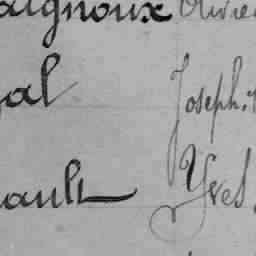 aignoux Olivie
al Joseph.
ault Yves